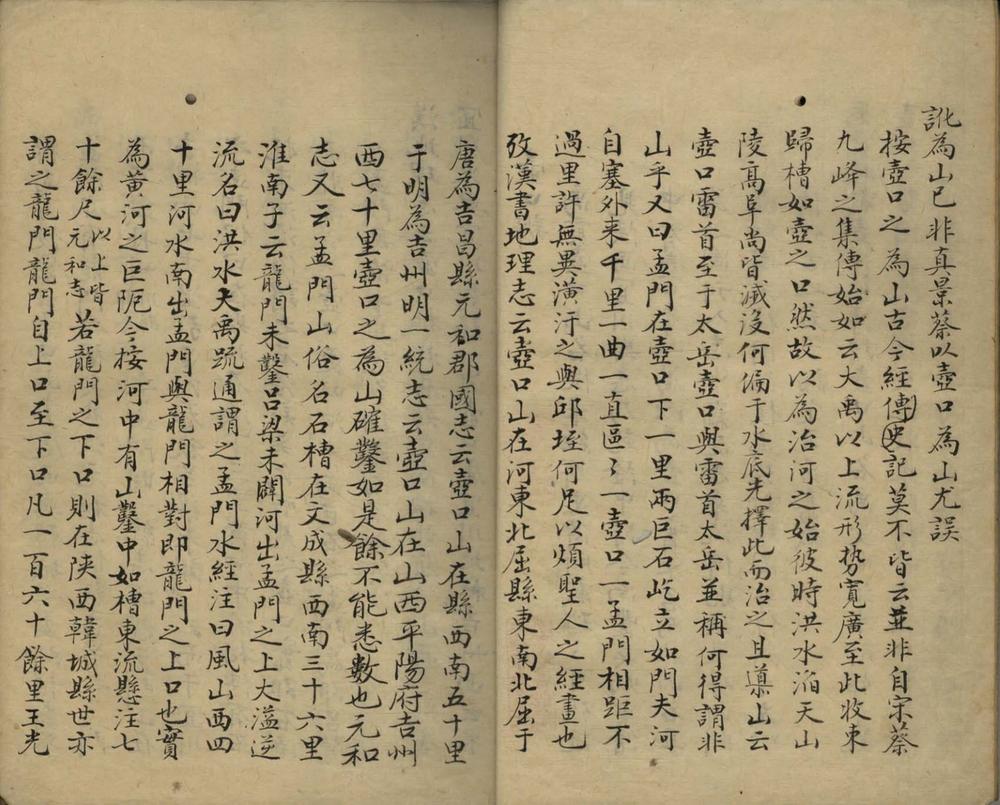 訛為山已非真景蔡以壺口為山尤誤
按壺口之為山古今經傳史記莫不皆云並非自宋蔡
九峰之集傳始如云大禹以上流形勢寬廣至此收束
歸槽如壺之口然故以為治河之始彼時洪水滔天山
陵高阜尚皆滅沒何偏于水底先擇此而治之且導山云
壺口雷首至于太岳壺口與雷首太岳並稱何得謂非
山乎又曰孟門在壺口下一里兩巨石屹立如門夫河
自塞外来千里一曲一直區々一壺口一孟門相距不
過里許無異潢汙之與邱垤何足以煩聖人之經畫也
攷漢書地理志云壺口山在河東北屈縣東南北屈于
唐為吉昌縣元和郡國志云壺口山在縣西南五十里
于明為吉州明一統志云壺口山在山西平陽府吉州
西七十里壺口之為山確鑿如是餘不能悉數也元和
志又云孟門山俗名石槽在文成縣西南三十六里
淮南子云龍門未鑿呂梁未闢河出孟門之上大溢逆
流名曰洪水大禹疏通謂之孟門水經注曰風山西四
十里河水南出孟門與龍門相對即龍門之上口也實
為黃河之巨阨今按河中有山鑿中如槽東流懸注七
十餘尺以上皆元和志若龍門之下口則在陝西韓城縣世亦
謂之龍門龍門自上口至下口凡一百六十餘里王光